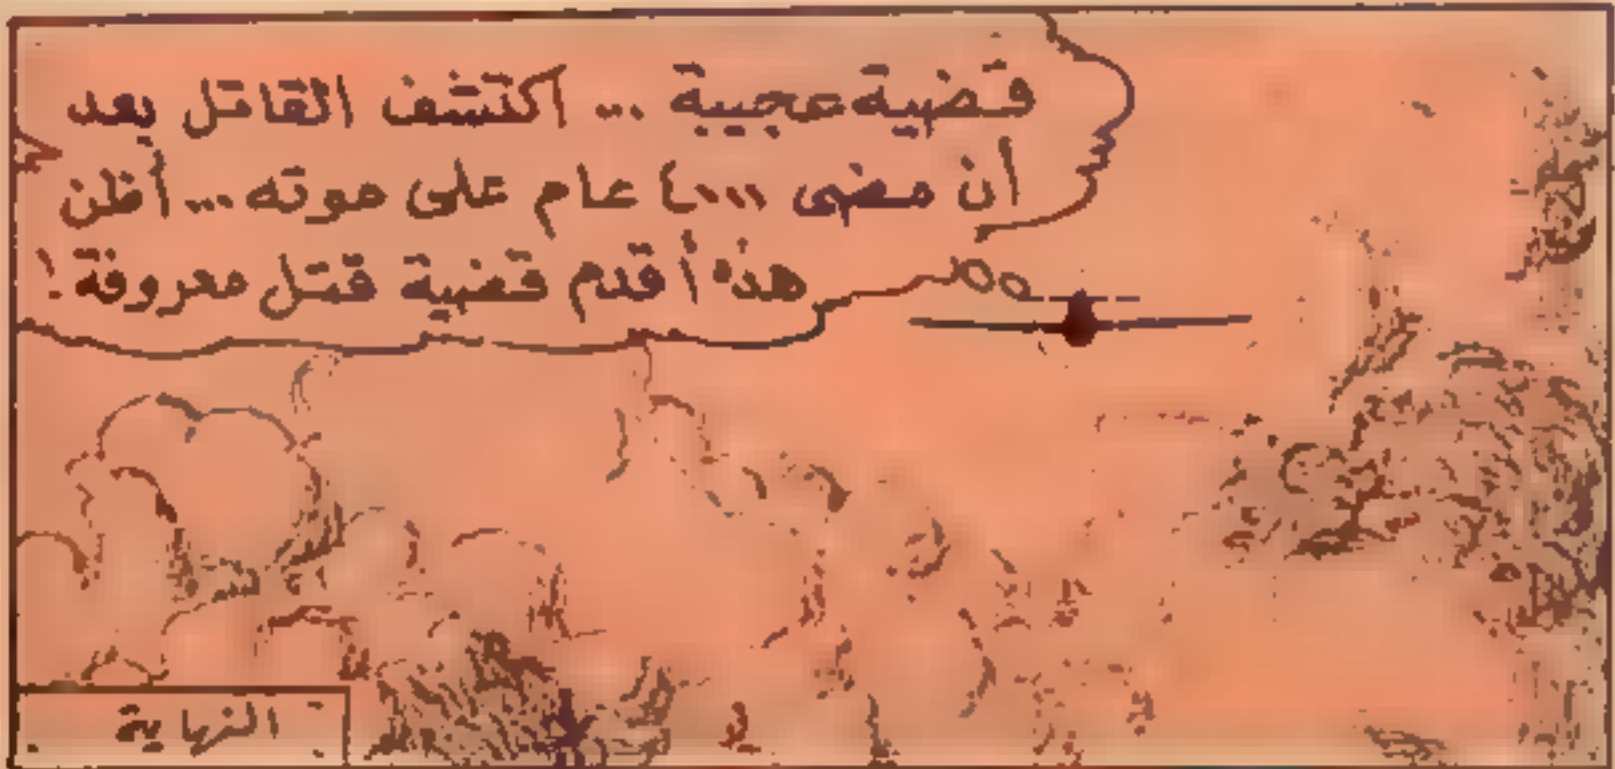 قضية عجيبة ... اكتشف القاتل بعد
أن مضى ٤٠٠٠ عام على موته ... أظن
هذه أقدم قضية قتل معروفة!
النهاية